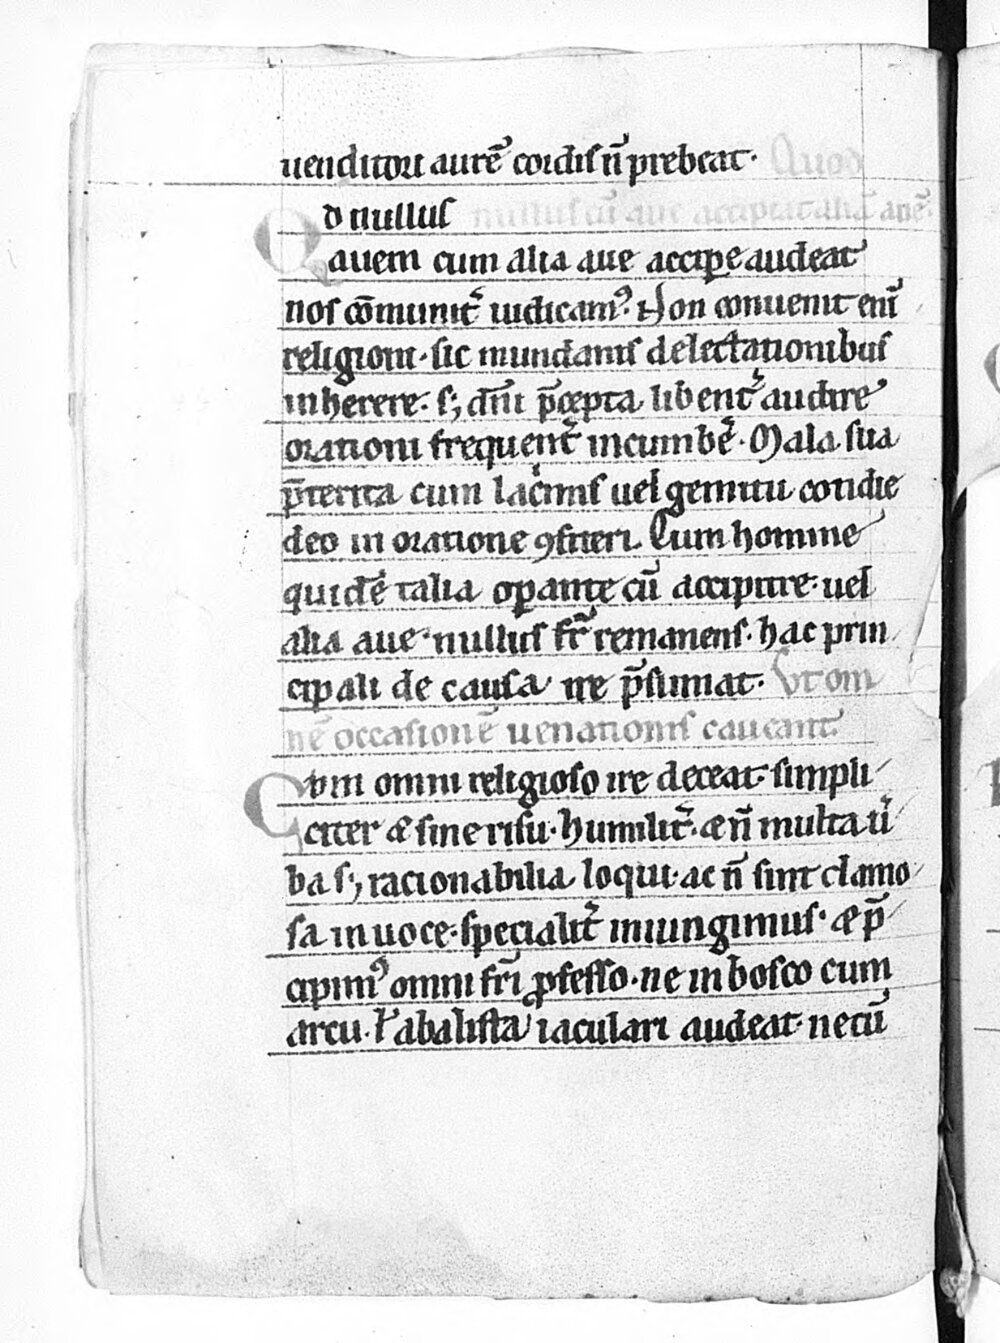 uenditori aurē cordis n̄ prebeat. Quod
Qd nullus nullus cū aue accipiat aliā auē.
auem cum alia aue accipe audeat
nos cōmunit̄ iudicam᷒. Non conuenit enī
religioni. sic mundanis delectationibus
inherere. s; dn̄i p̄cepta libent̄ audire
orationi frequent̄ incumbē. Mala sua
p̄terita cum lac̄mis uel gemitu cotidie
deo in oratione ꝯfiteri. Cum homine
quidē talia opante cū accipitre. uel
alia aue. nullus fr̄ remanens. hac prin
cipali de causa ire p̄sumat. Vt om
nē occasionē uenationis caueant.
Cum omni religioso ire deceat. simpli
citer & sine risu. humilit̄. & n̄ multa ū
ba s; racionabilia loqui. ac n̄ sint clamo
sa in uoce. specialit̄ iniungimus. & p̄
cipim᷒ omni fr̄i ꝓfesso. ne in bosco cum
arcu. ł abalista iaculari audeat. nec cū